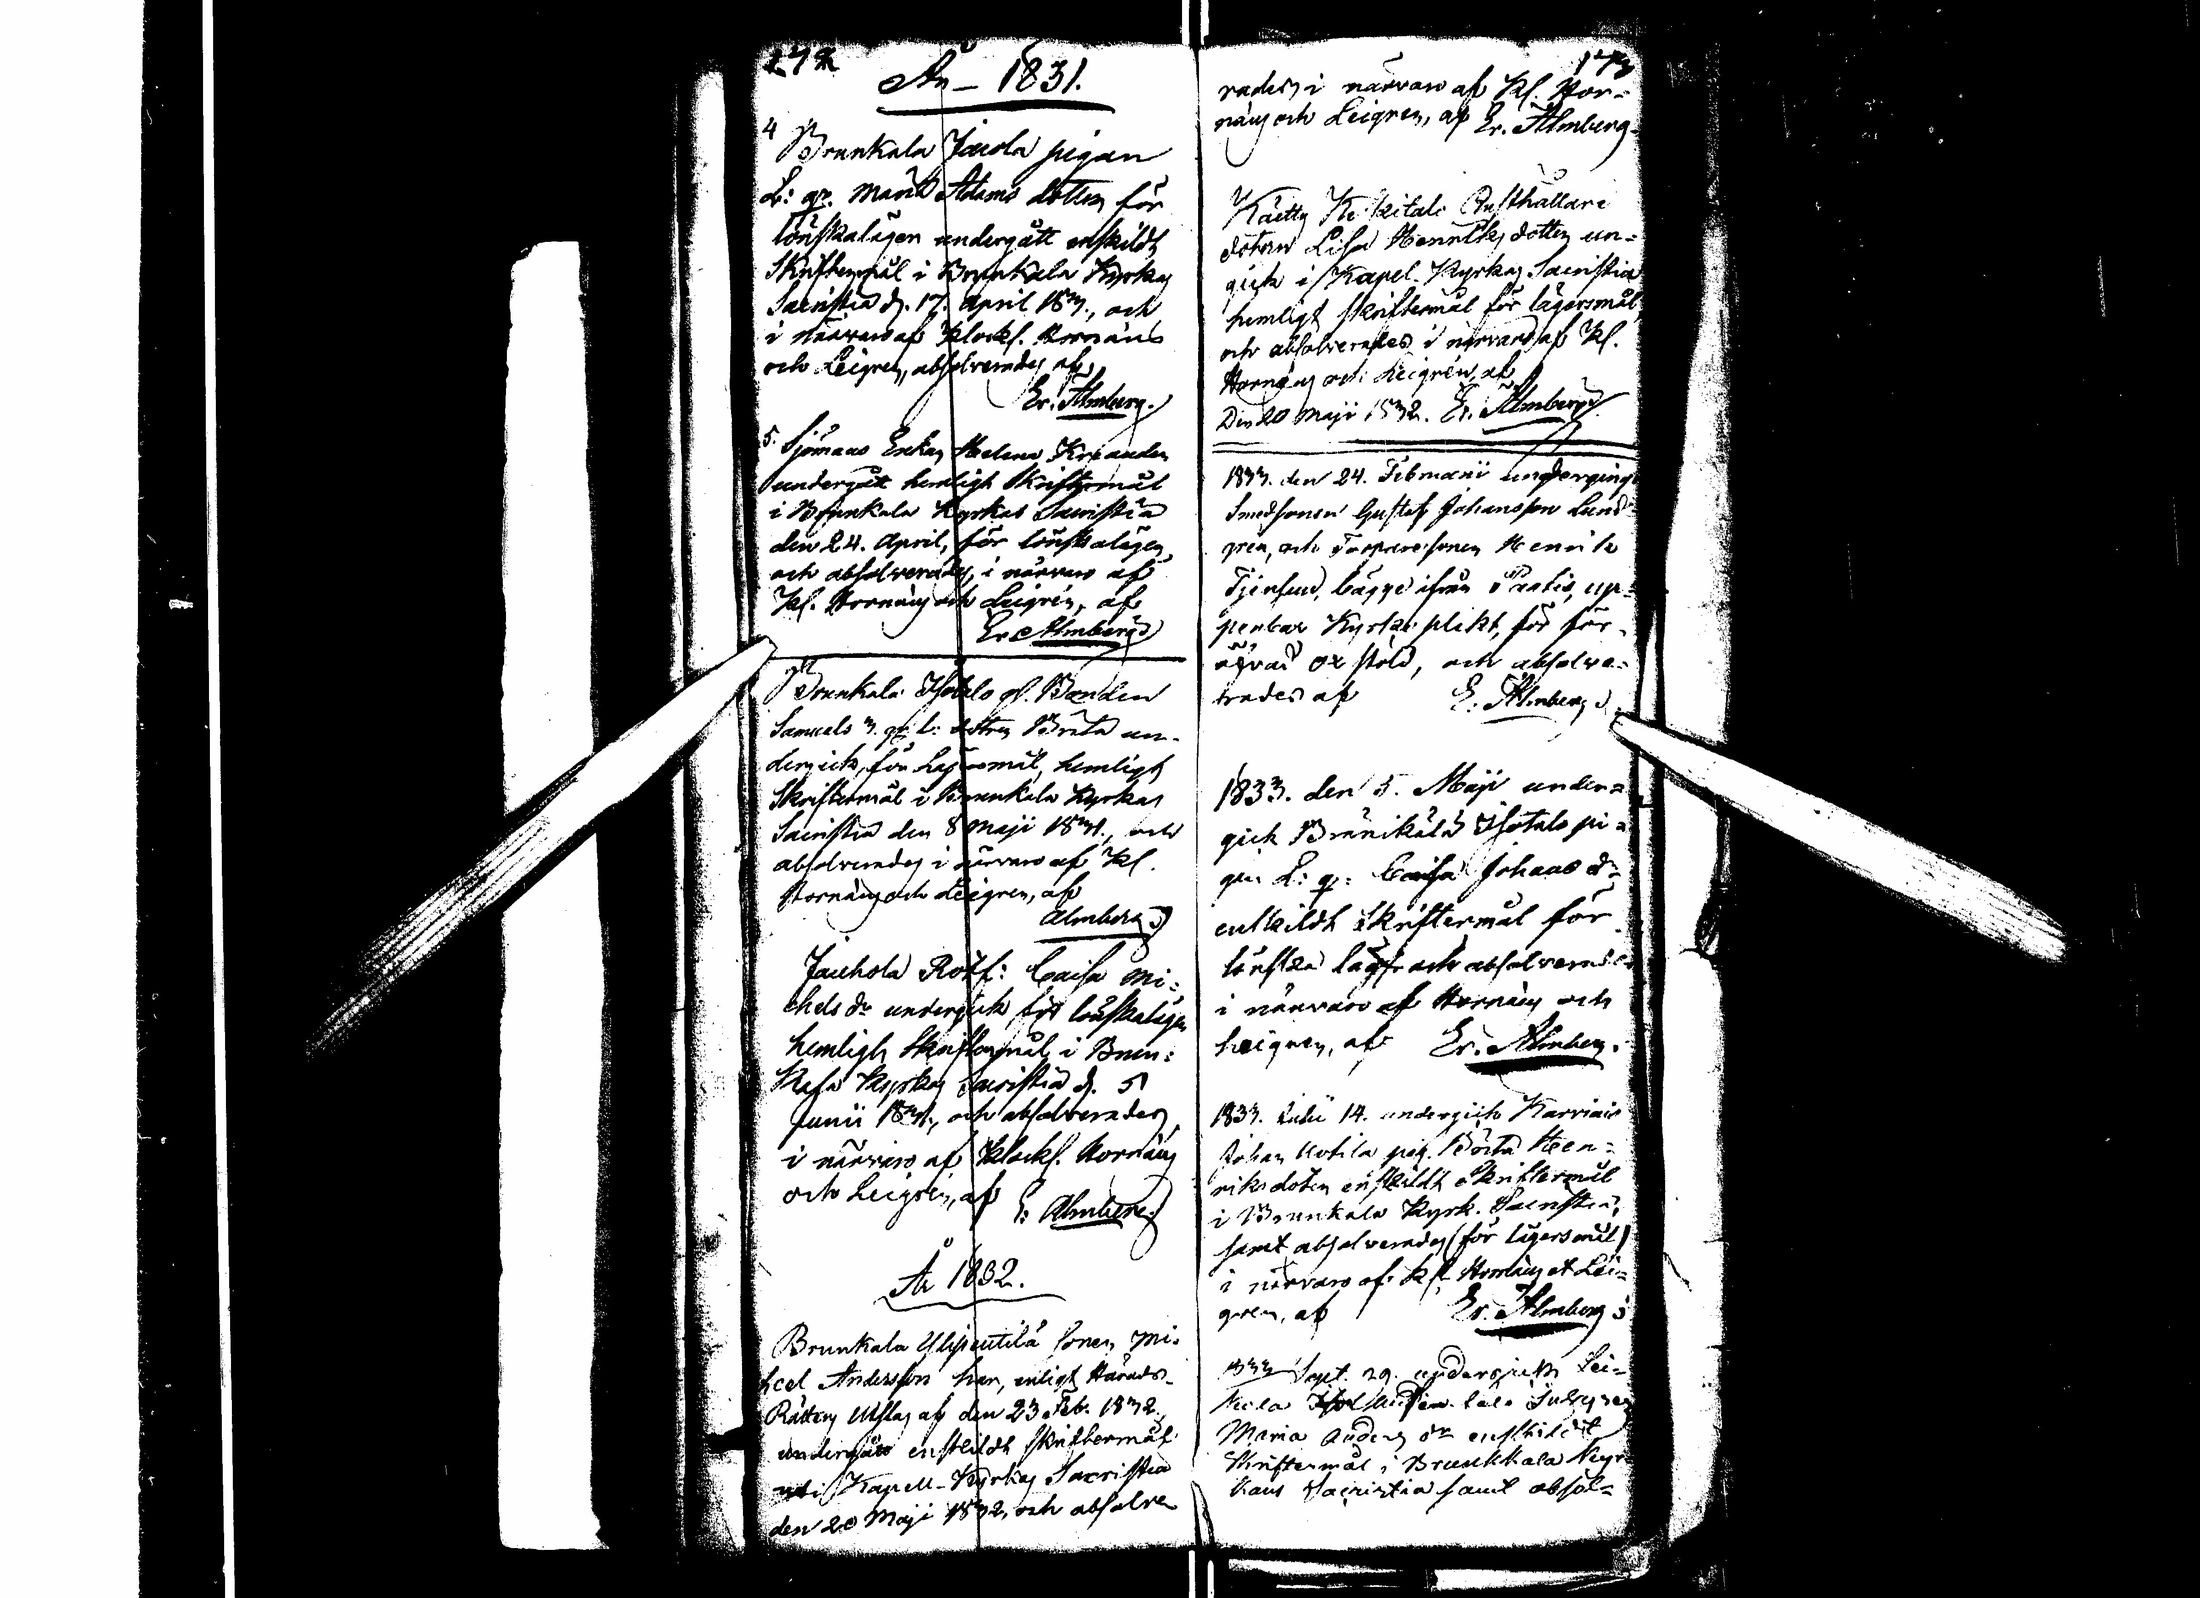 172
År 1831.
4
Brunkala Jauola pigan
L: qv. Maria Adams dotter för
lönskalägen undergått enskildt
Skriftermål i Brunkala Kyrkas
Sacristia d. 17. April 1831., och
i närvaro af Klockf. Hornæus
och Leigren, absolverades af
Er. Almberg.
5. Sjömans Enkan Helena Kreander
undergått hemligt Skriftermål
i Brunkala Kyrkas Sacristia
den 24. April, för lönskalägen,
och absolverades, i närvaro af
Kl. Hornæus och Leigrén, af
Er Almberg
Brunkala Isotalo gl. Bonden
Samuels qv. l: dotren Brita un-
dergick, för Lägersmål, hemligt
Skriftermål i Brunkala Kyrkas
Sacristia den 8 Maji 1831., och
absolverades i närvaro af Kl.
Hornæus och Leigren, af
Almberg
Jauhola Rotf: Caisa Mi-
chels dr undergick, för lönskalägen
hemligt Skriftermål i Brun-
kala Kyrkas Sacristia d. 5
Junii 1831., och absolverades,
i närvaro af Klockf. Hornæus
och Leigrén, af
E: Almberg
År 1832.
Brunkala Ylipentilä sonen Mi-
hcel Andersson har, enligt Härads-
Rättens Utslag af den 23 Feb. 1832.
undergått enskildt skriftermål
uti Kapell-Kyrkas Sacristia
den 20 Maji 1832, och absolve
173
rades, i närvaro af Kl. Hor-
næus och Leigren, af Er. Almberg
Rusthållare
dotren Lisa Henriks dotter un-
gick i Kapel-Kyrkas Sacristia
hemligt skriftermål för lägersmål,
och absolverades i närvaro af Kl.
Hornæus och Leigrén, af
Den 20 Maji 1832. Er. Almberg
1833. den 24. Februarii undergingo
Smedsonen Gustaf Johansson Lund-
gren, och Torparesonen Henrik
bägge ifrån Paatis, up-
penbar Kyrko plikt, för för-
öfvad ox stöld, och absolve-
rades af E. Almberg
1833. den 5. Maji under-
gick Brunikala Isotalo pi-
gan L: qv: Caisa Johans dr
enskildt Skriftermål för
lönska läger och absolverades
i närvaro af Hornæus och
Leigren, af Er. Almberg.
1833. Julii 14. undergick Karviais
Johan Kotila pig. Hen-
riksdoter enskildt Skriftermål
i Brunkala Kyrk. Sacristia,
samt absolverades (för lägersmål)
i närvaro af Kl. Hornæus et Lei-
gren, af Er. Almberg
1833 Sept. 29. undergick Lei-
Maria Anders dr enskildt
Skriftermål i Brunkkala Kyr-
kans Sacristia samt absol-